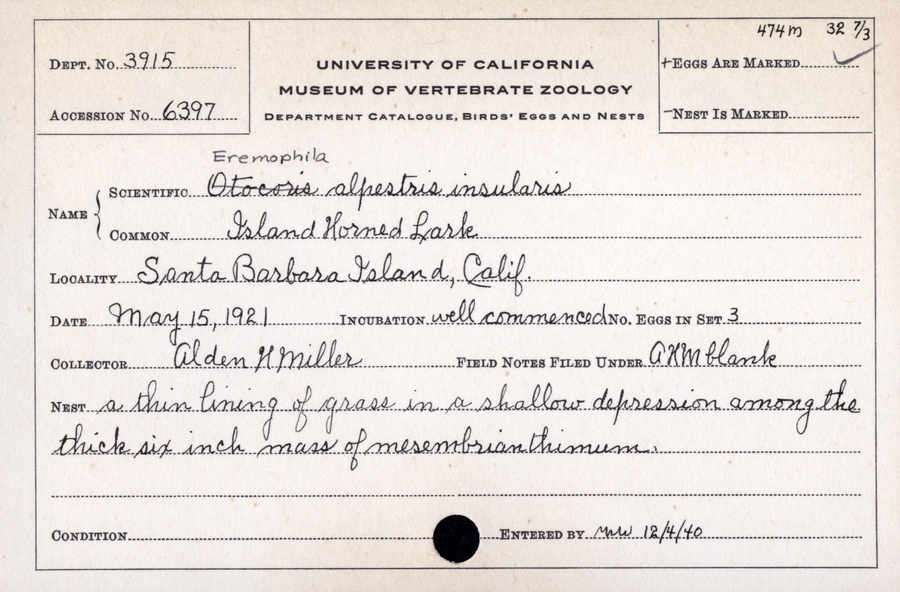 474m 32 7/3
Dept. No. 3915
UNIVERSITY OF CALIFORNIA
+Eggs Are Marked ✓
MUSEUM OF VERTEBRATE ZOOLOGY
Accession No. 6397
Department Catalogue, Birds' Eggs and Nests
-Nest Is Marked
Eremophila
Name { Scientific Otocoris alpestris insularis
Common Island Horned Lark
Locality Santa Barbara Island, Calif.
Date May 15, 1921 Incubation well commenced No. Eggs in Set 3
Collector Alden H Miller Field Notes Filed Under AHM blank
Nest a thin lining of grass in a shallow depression among the
thick six inch mass of mesembrianthimum.
Condition Entered by MW 12/4/40